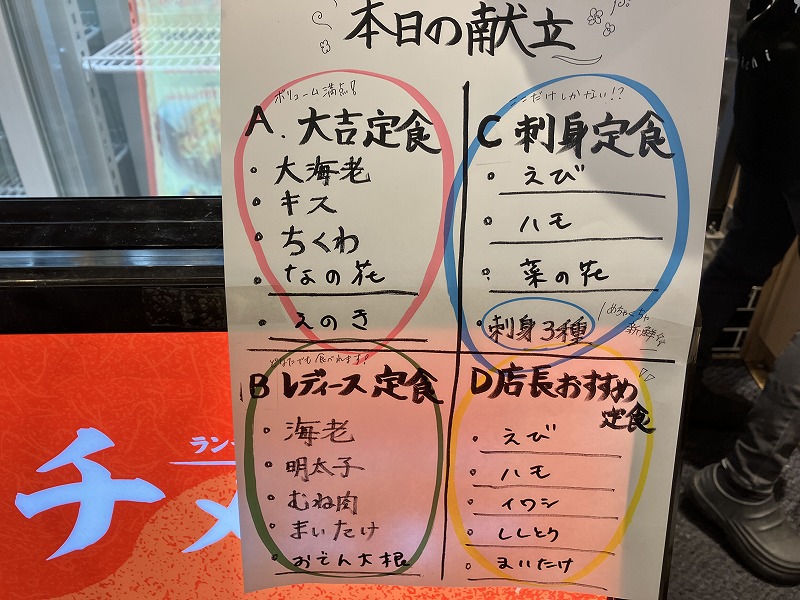 本日の献立
ボリューム満点!
A. 大吉定食
大海老
キス
ちくわ
なの花
えのき
ここだけしかない!?
C 刺身定食
えび
ハモ
菜の花
刺身3種
めちゃくちゃ
新鮮
どなたでも食べれます!
B レディース定食
海老
明太子
むね肉
まいたけ
おでん大根
D店長おすすめ
定食
えび
ハモ
イワシ
ししとう
まいたけ
ラン
チ